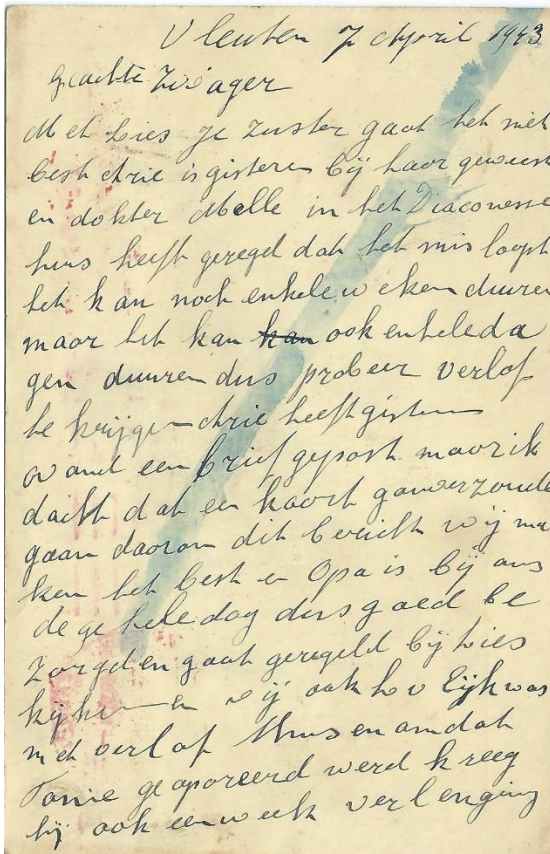 Vleuten 7 April 1943
Geachte Zwager
Met Lies je zuster gaat het niet
best drie is gisteren bij haar geweest
en dokter Melle in het Diaconesse
huis heeft gezegd dat het mis loopt
het kan noch enkele weken duuren
maar het kan kan ook enkele da
gen duuren dus probeer verlof
te krijgen drie heeft gisteren
avond een brief gepost maar ik
dacht dat een kaart gauwer zoude
gaan daarom dit bericht wij ma
ken het best en Opa is bij ons
de gehele dag dus goed be
zorgd en gaat geregeld bij Lies
kijken en wij ook h v Eijk was
met verlof thus en omdat
Tonie geopereerd werd kreeg
hij ook een week verlenging